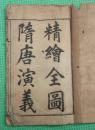 精繪全圖
隋唐演義